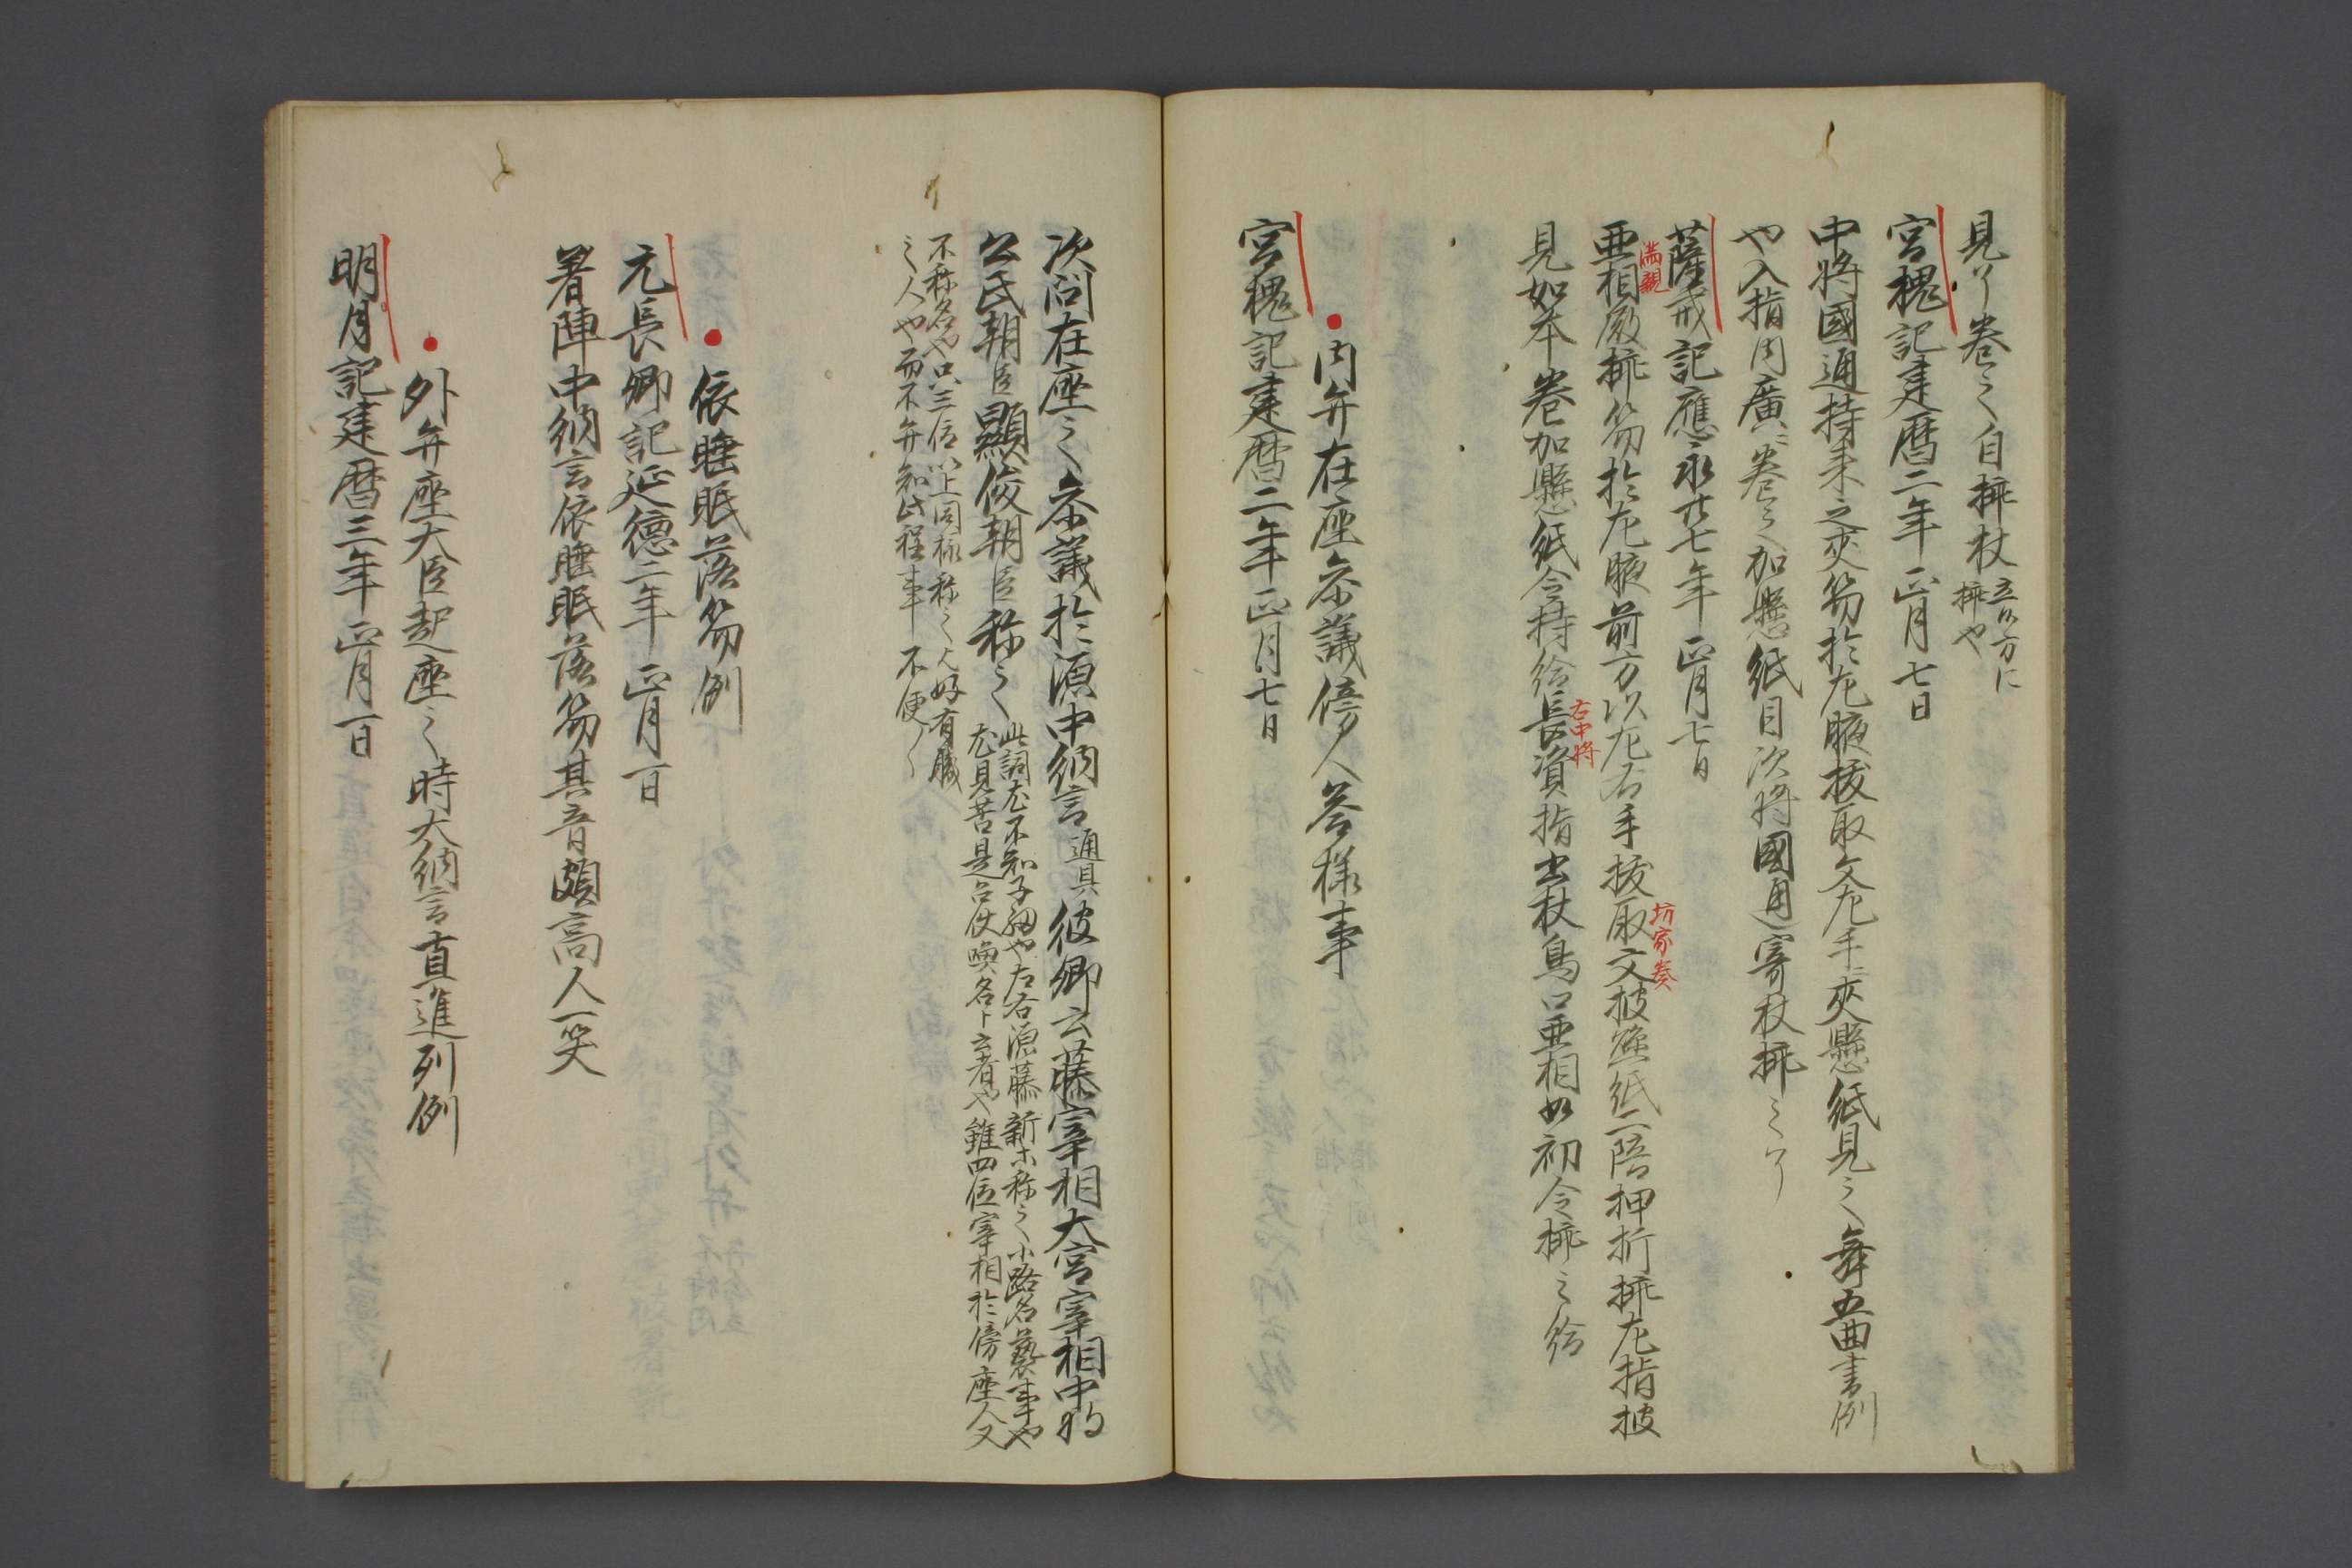 見了巻之自挿杖立次方に挿也
宮槐記建暦二年正月七日
中将國通持来之夾笏於左腋抜取文左手夾懸紙見之舞五曲書例
也入指内廣ニ巻之加懸紙目次将國通寄杖挿之了
薩戒記應永廿七年正月七日
満親
亜相殿挿笏於左腋前方以左右手抜取文披懸紙二倍押折挿左指披
坊家奏
見如本巻加懸紙令持給長資指出杖鳥口亜相如初令挿之給
右中将
内弁在座参議傍人答様事
宮槐記建暦二年正月七日
次問在座之参議於源中納言通具彼卿云藤宰相大宮宰相中将
公氏朝臣顯俊朝臣称之此詞尤不知子細也左右源藤新ホ称之小路名藝事也
尤見苦是召仗喚名ト云者也雖四位宰相於傍座人又
不称名也只三位以上同様称之人好有職
之人也而不弁知此程事不便〻
依睡眠落笏例
元長卿記延徳二年正月一日
着陣中納言依睡眠落笏其音頗高人一笑
外弁座大臣起座之時大納言直進列例
明月記建暦三年正月一日